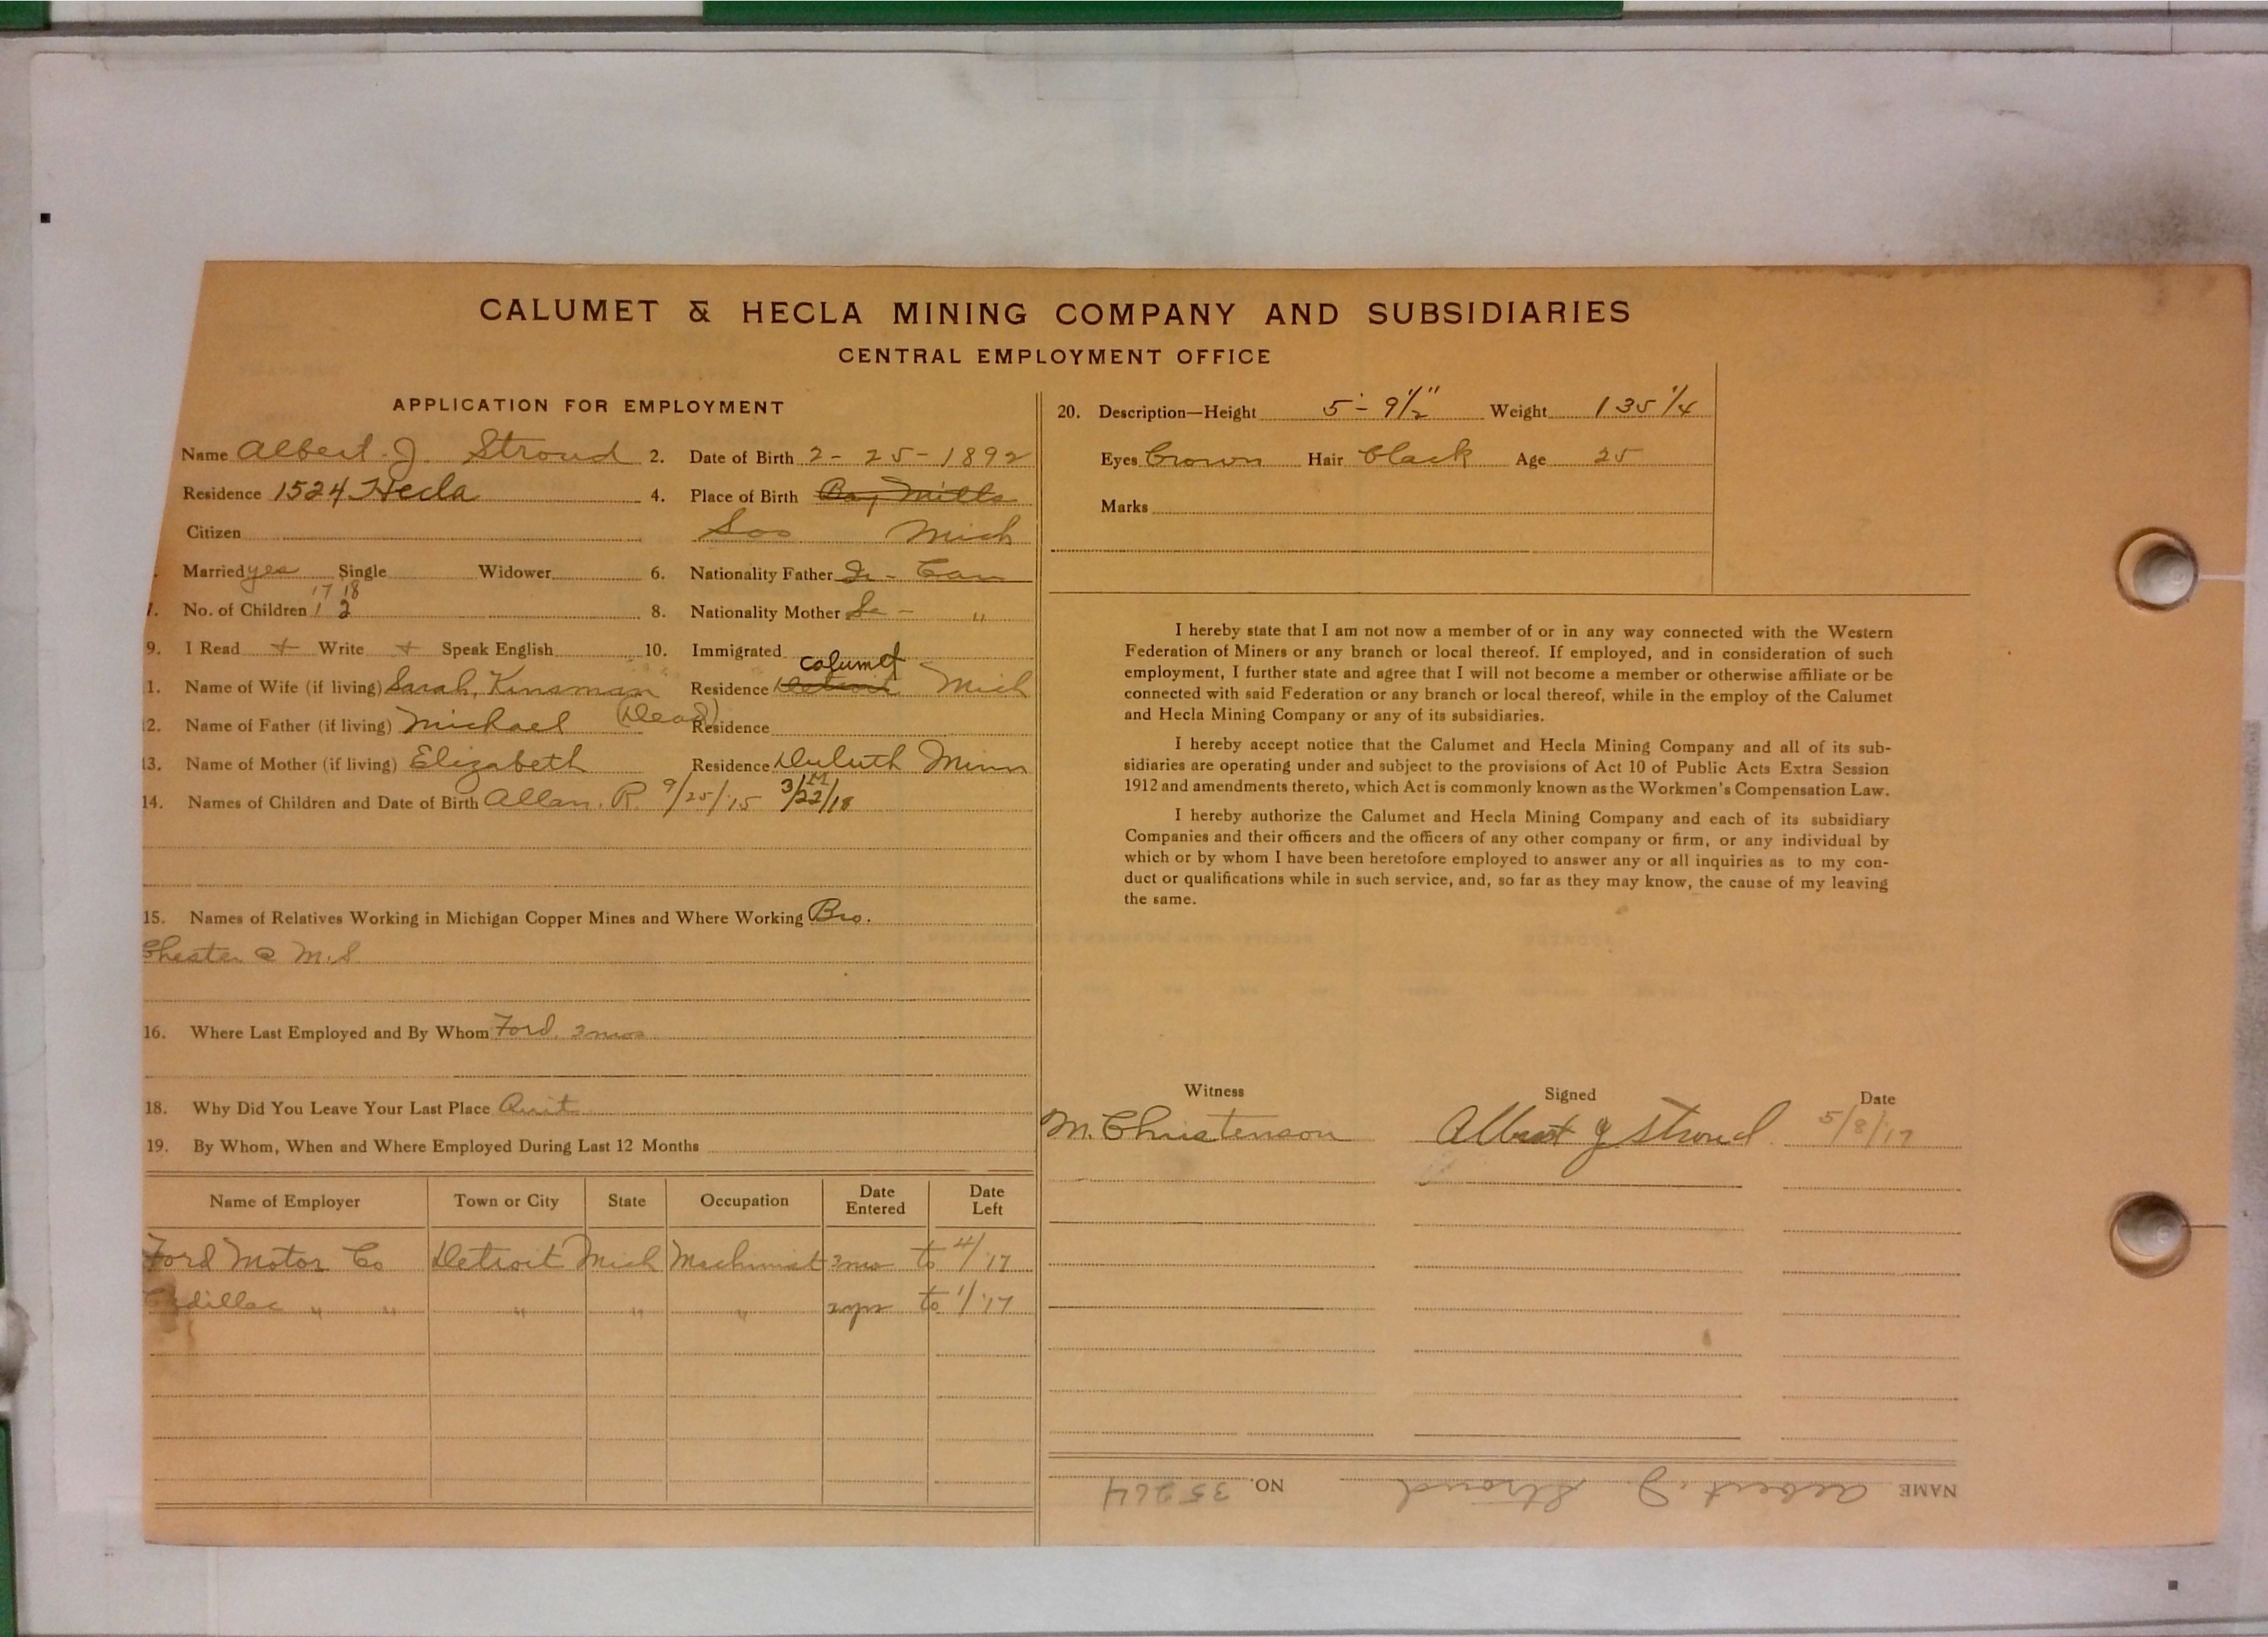 CALUMET & HECLA MINING COMPANY AND SUBSIDIARIES
CENTRAL EMPLOYMENT OFFICE
APPLICATION FOR EMPLOYMENT
Name Albert J. Stroud 2. Date of Birth 2-25-1892
Residence 1524 Hecla 4. Place of Birth Bay Mills
Citizen Soo Mich
Married yes Single Widower 6. Nationality Father Can
17 18
No. of Children 1 2 8. Nationality Mother "
9. I Read + Write + Speak English 10. Immigrated
Calumet
1. Name of Wife (if living) Sarah, Kinsman Residence Detroit Mich
12. Name of Father (if living) Michael (Dead) Residence
13. Name of Mother (if living) Elizabeth Residence Duluth Minn
14. Names of Children and Date of Birth Allan. R 9/25/'15 3/22/18
15. Names of Relatives Working in Michigan Copper Mines and Where Working Bro.
Chester @ M.S
16. Where Last Employed and By Whom Ford,
18. Why Did You Leave Your Last Place Quit
19. By Whom, When and Where Employed During Last 12 Months
Name of Employer Town or City State Occupation Date Entered Date Left
Ford Motor Co Detroit Mich Machinist to 4/'17
Cadillac " " " " " to 1/'17
20. Description—Height 5'-9 1/2" Weight 135 1/4
Eyes Brown Hair Black Age 25
Marks
I hereby state that I am not now a member of or in any way connected with the Western
Federation of Miners or any branch or local thereof. If employed, and in consideration of such
employment, I further state and agree that I will not become a member or otherwise affiliate or be
connected with said Federation or any branch or local thereof, while in the employ of the Calumet
and Hecla Mining Company or any of its subsidiaries.
I hereby accept notice that the Calumet and Hecla Mining Company and all of its sub-
sidiaries are operating under and subject to the provisions of Act 10 of Public Acts Extra Session
1912 and amendments thereto, which Act is commonly known as the Workmen's Compensation Law.
I hereby authorize the Calumet and Hecla Mining Company and each of its subsidiary
Companies and their officers and the officers of any other company or firm, or any individual by
which or by whom I have been heretofore employed to answer any or all inquiries as to my con-
duct or qualifications while in such service, and, so far as they may know, the cause of my leaving
the same.
Witness Signed Date
M. Christenson Albert J Stroud 5/8/17
NAME Albert J. Stroud NO. 35264